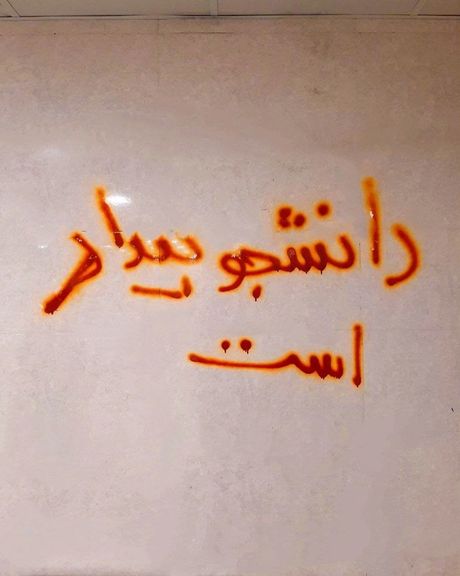 دانشجو بیدار
است